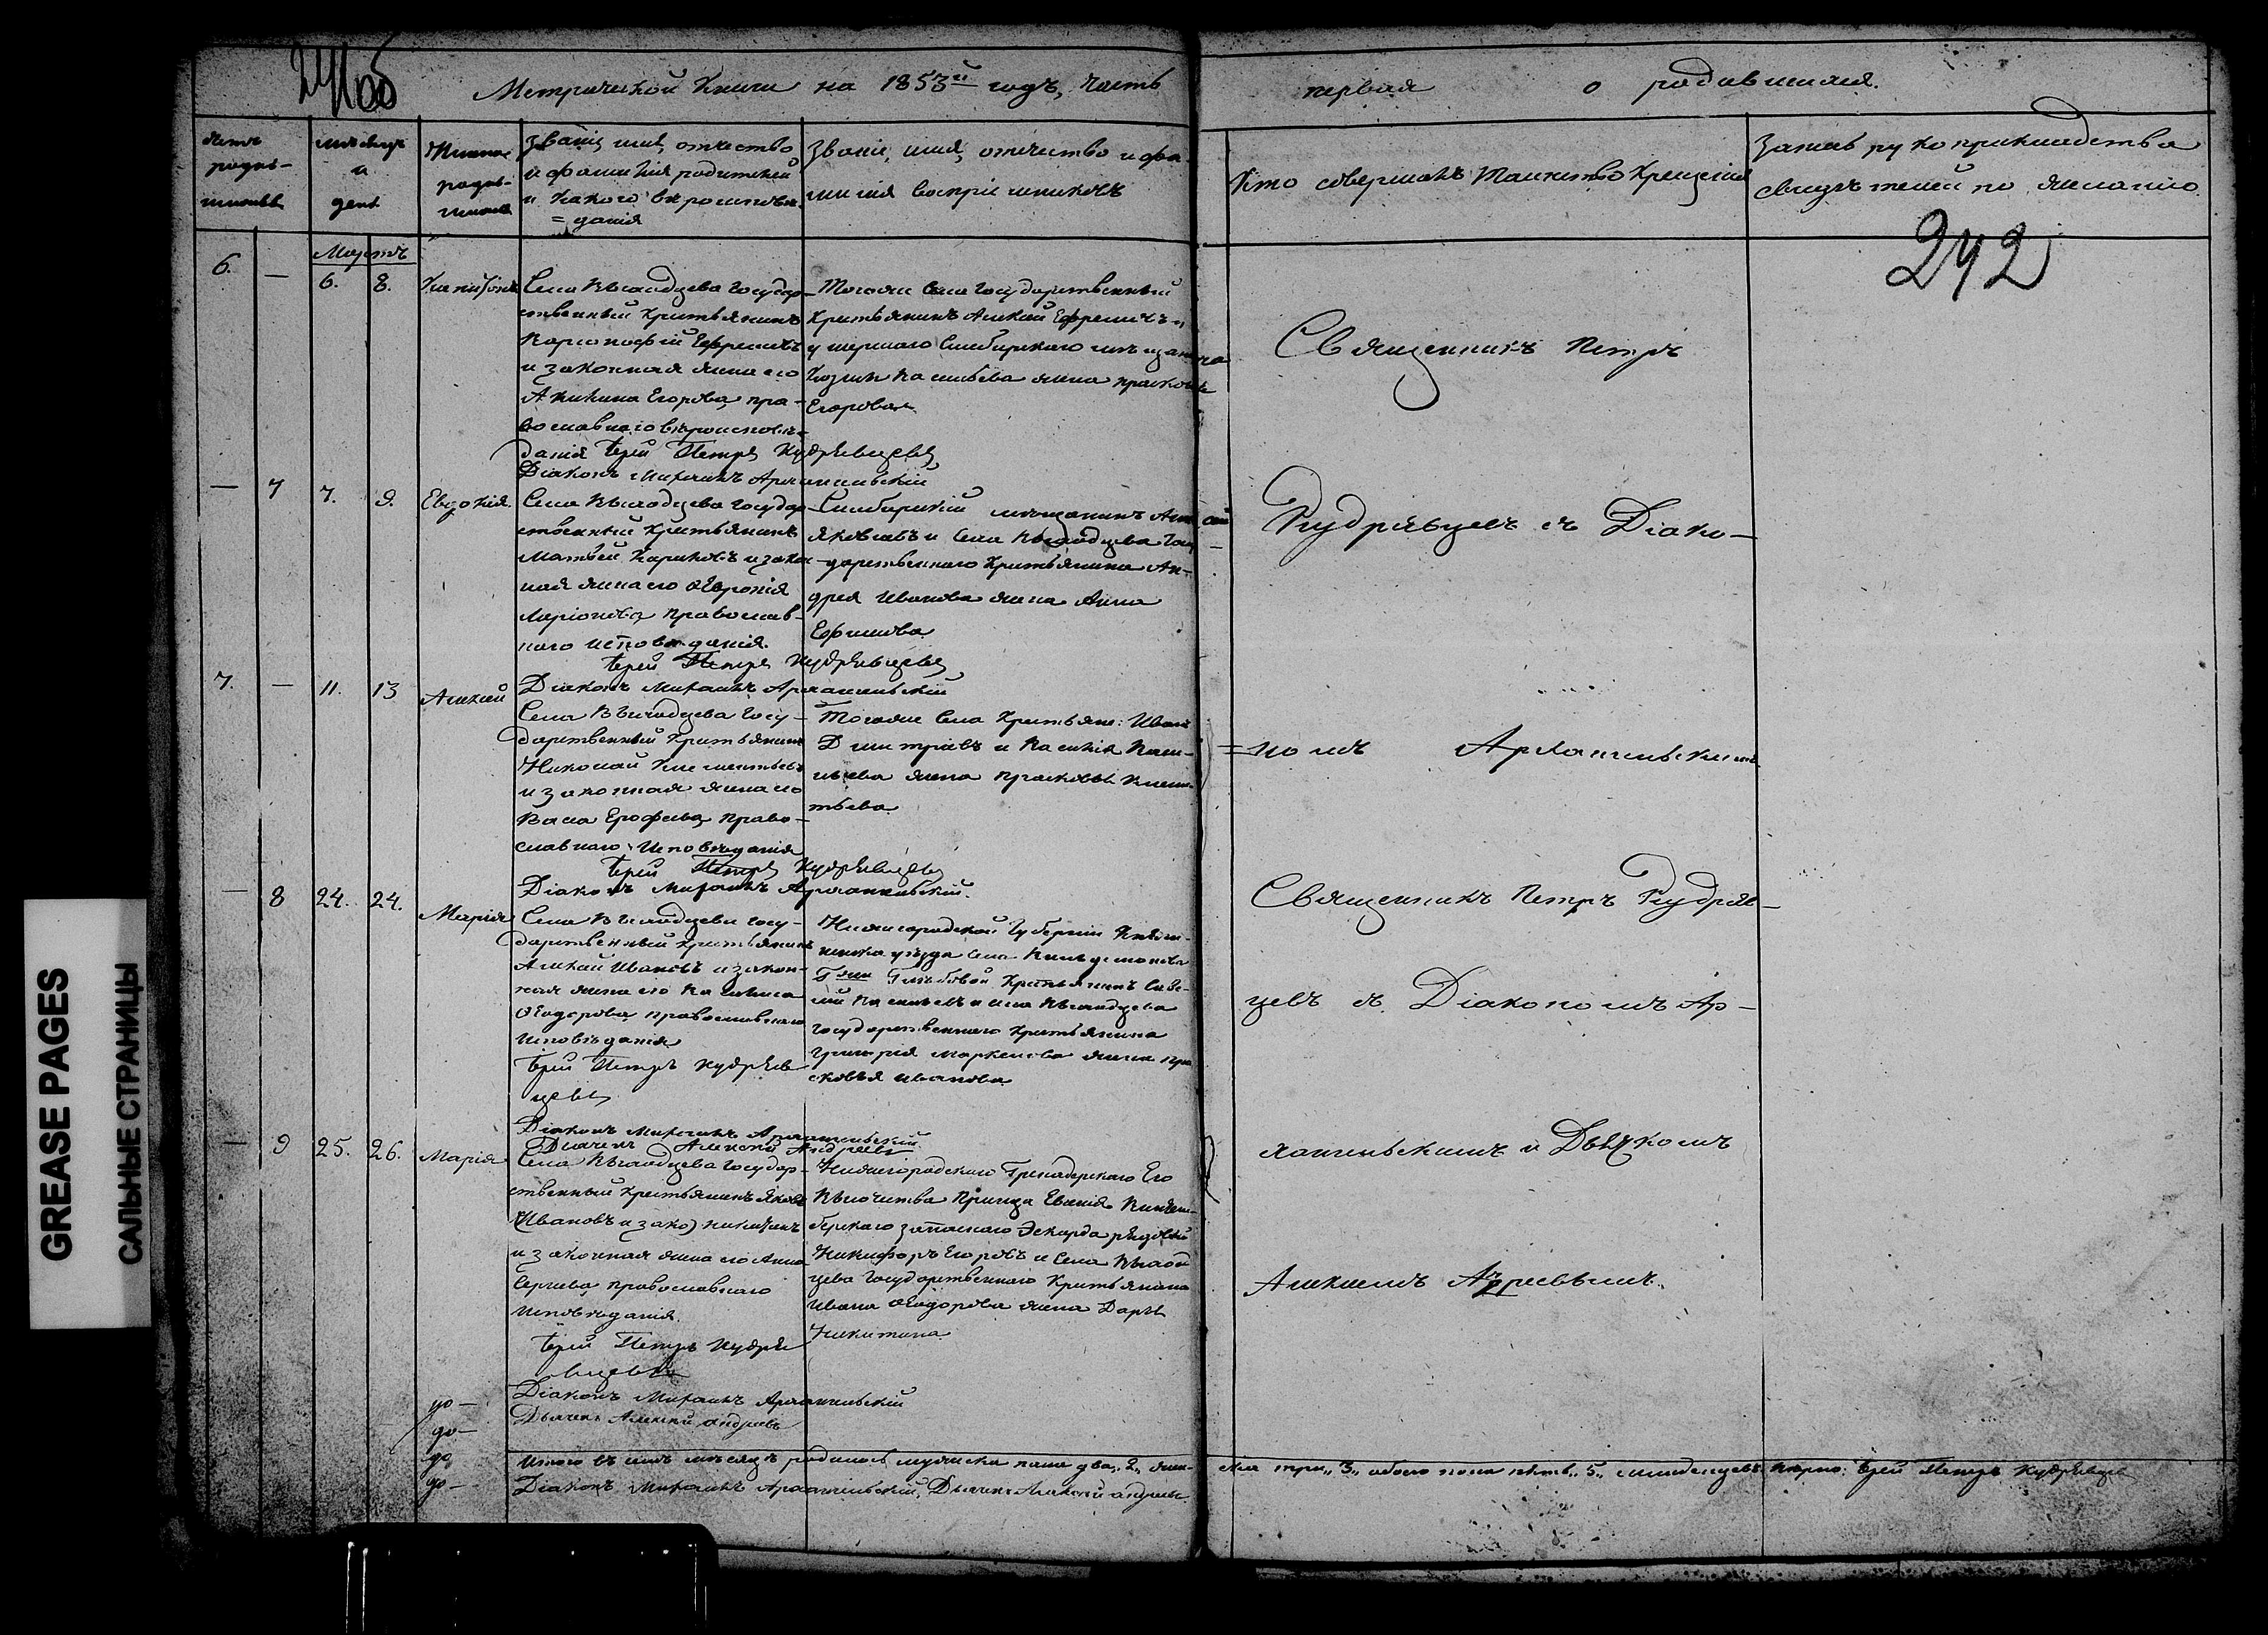 241об
Метрической Книги на 1853й годъ, часть
первая о родившихся.
Счетъ родив-
шихся
мѣсяцъ
и
день
Имена
родив-
шихся
Званіе, имя, отчество
и фамилія родителей
и какого вѣроисповѣ-
=данія
Званіе, имя, отчество и фа-
милія воспріемниковъ
Кто совершалъ таинство крещенія
рукоприкладства
свидѣтелей по желанію
242
Мартъ
6. — 6. 8.
Села Выползова Государ-
ственный крестьянинъ
Ефремовъ
и законная жена его
Акилина Егорова, пра-
вославнаго вѣроисповѣ-
данія Іерей Петръ Кудрявцевъ
Діаконъ Михаилъ Архангельскій
Тогоже села Государственный
крестьянинъ Алексѣй Ефремовъ и
умершаго Симбирскаго мѣщанина
Козьмы Васильева жена Прасковья
Егорова
Священникъ Петръ
— 7 7. 9. Евдокія.
Села Государ-
ственный крестьянинъ
Матвей и закон-
ная жена его Ѳеврокія
Ларіонова православ-
наго исповѣданія.
Іерей Петръ Кудрявцевъ
Діаконъ Михаилъ Архангельскій
Симбирскій мѣщанинъ Алексѣй
Яковлевъ и села Госу-
дарственнаго крестьянина Ан-
дрея Иванова жена Анна
Ефимова
Кудрявцевъ съ Діако-
7. — 11. 13 Алексѣй
Села Госу-
дарственный крестьянинъ
Николай Климентьевъ
и законная жена его
Васса Ерофеева право-
славнаго исповѣданія
Іерей Петръ Кудрявцевъ
Діаконъ Михаилъ Архангельскій.
Тогоже села крестьяне: Иванъ
Дмитріевъ и Василія Васи-
льева жена Прасковья Климен-
тьева
=номъ Архангельскимъ
— 8 24. 24. Марія
Села Госу-
дарственный крестьянинъ
Алексѣй Ивановъ и закон-
ная жена его Васса
Ѳедорова православнаго
исповѣданія
Іерей Петръ Кудряв
цевъ
Діаконъ Михаилъ Архангельскій
Дьячекъ Алексѣй Андреевъ
Нижегородской Губерніи Княги-
нина уѣзда села
Глѣбовой крестьянинъ
Васильевъ и села
Государственнаго крестьянина
Григорія жена Пра
сковья Иванова
Священникъ Петръ Кудряв-
цевъ съ Діакономъ Ар-
— 9 25. 26. Марія
Села Государ-
ственный крестьянинъ Яковъ
(Ивановъ и зако)
и законная жена его Анна
Сергеева православнаго
исповѣданія.
Іерей Петръ Кудря
вцевъ
Діаконъ Михаилъ Архангельскій
Дьячекъ Алексѣй Андреевъ
Нижегородскаго Гренадерскаго Его
Высочества Принца Евгенія Виртем-
бергскаго запаснаго рядовый
Никифоръ Егоровъ и села
Государственнаго крестьянина
Ивана Ѳедорова жена Дарья
Никитина
хангельскимъ и Дьячкомъ
Алексѣемъ Андреевымъ.
до —
до —
до
до —
Итого въ семъ мѣсяцѣ родилось мужеска пола два „2„ жен-
ска три „3„ обоего пола пять „5„ младенцевъ Вѣрно: Іерей Петръ Кудрявцевъ
Діаконъ Михаилъ Архангельскій, Дьячекъ Алексѣй Андреевъ
GREASE PAGES
САЛЬНЫЕ СТРАНИЦЫ